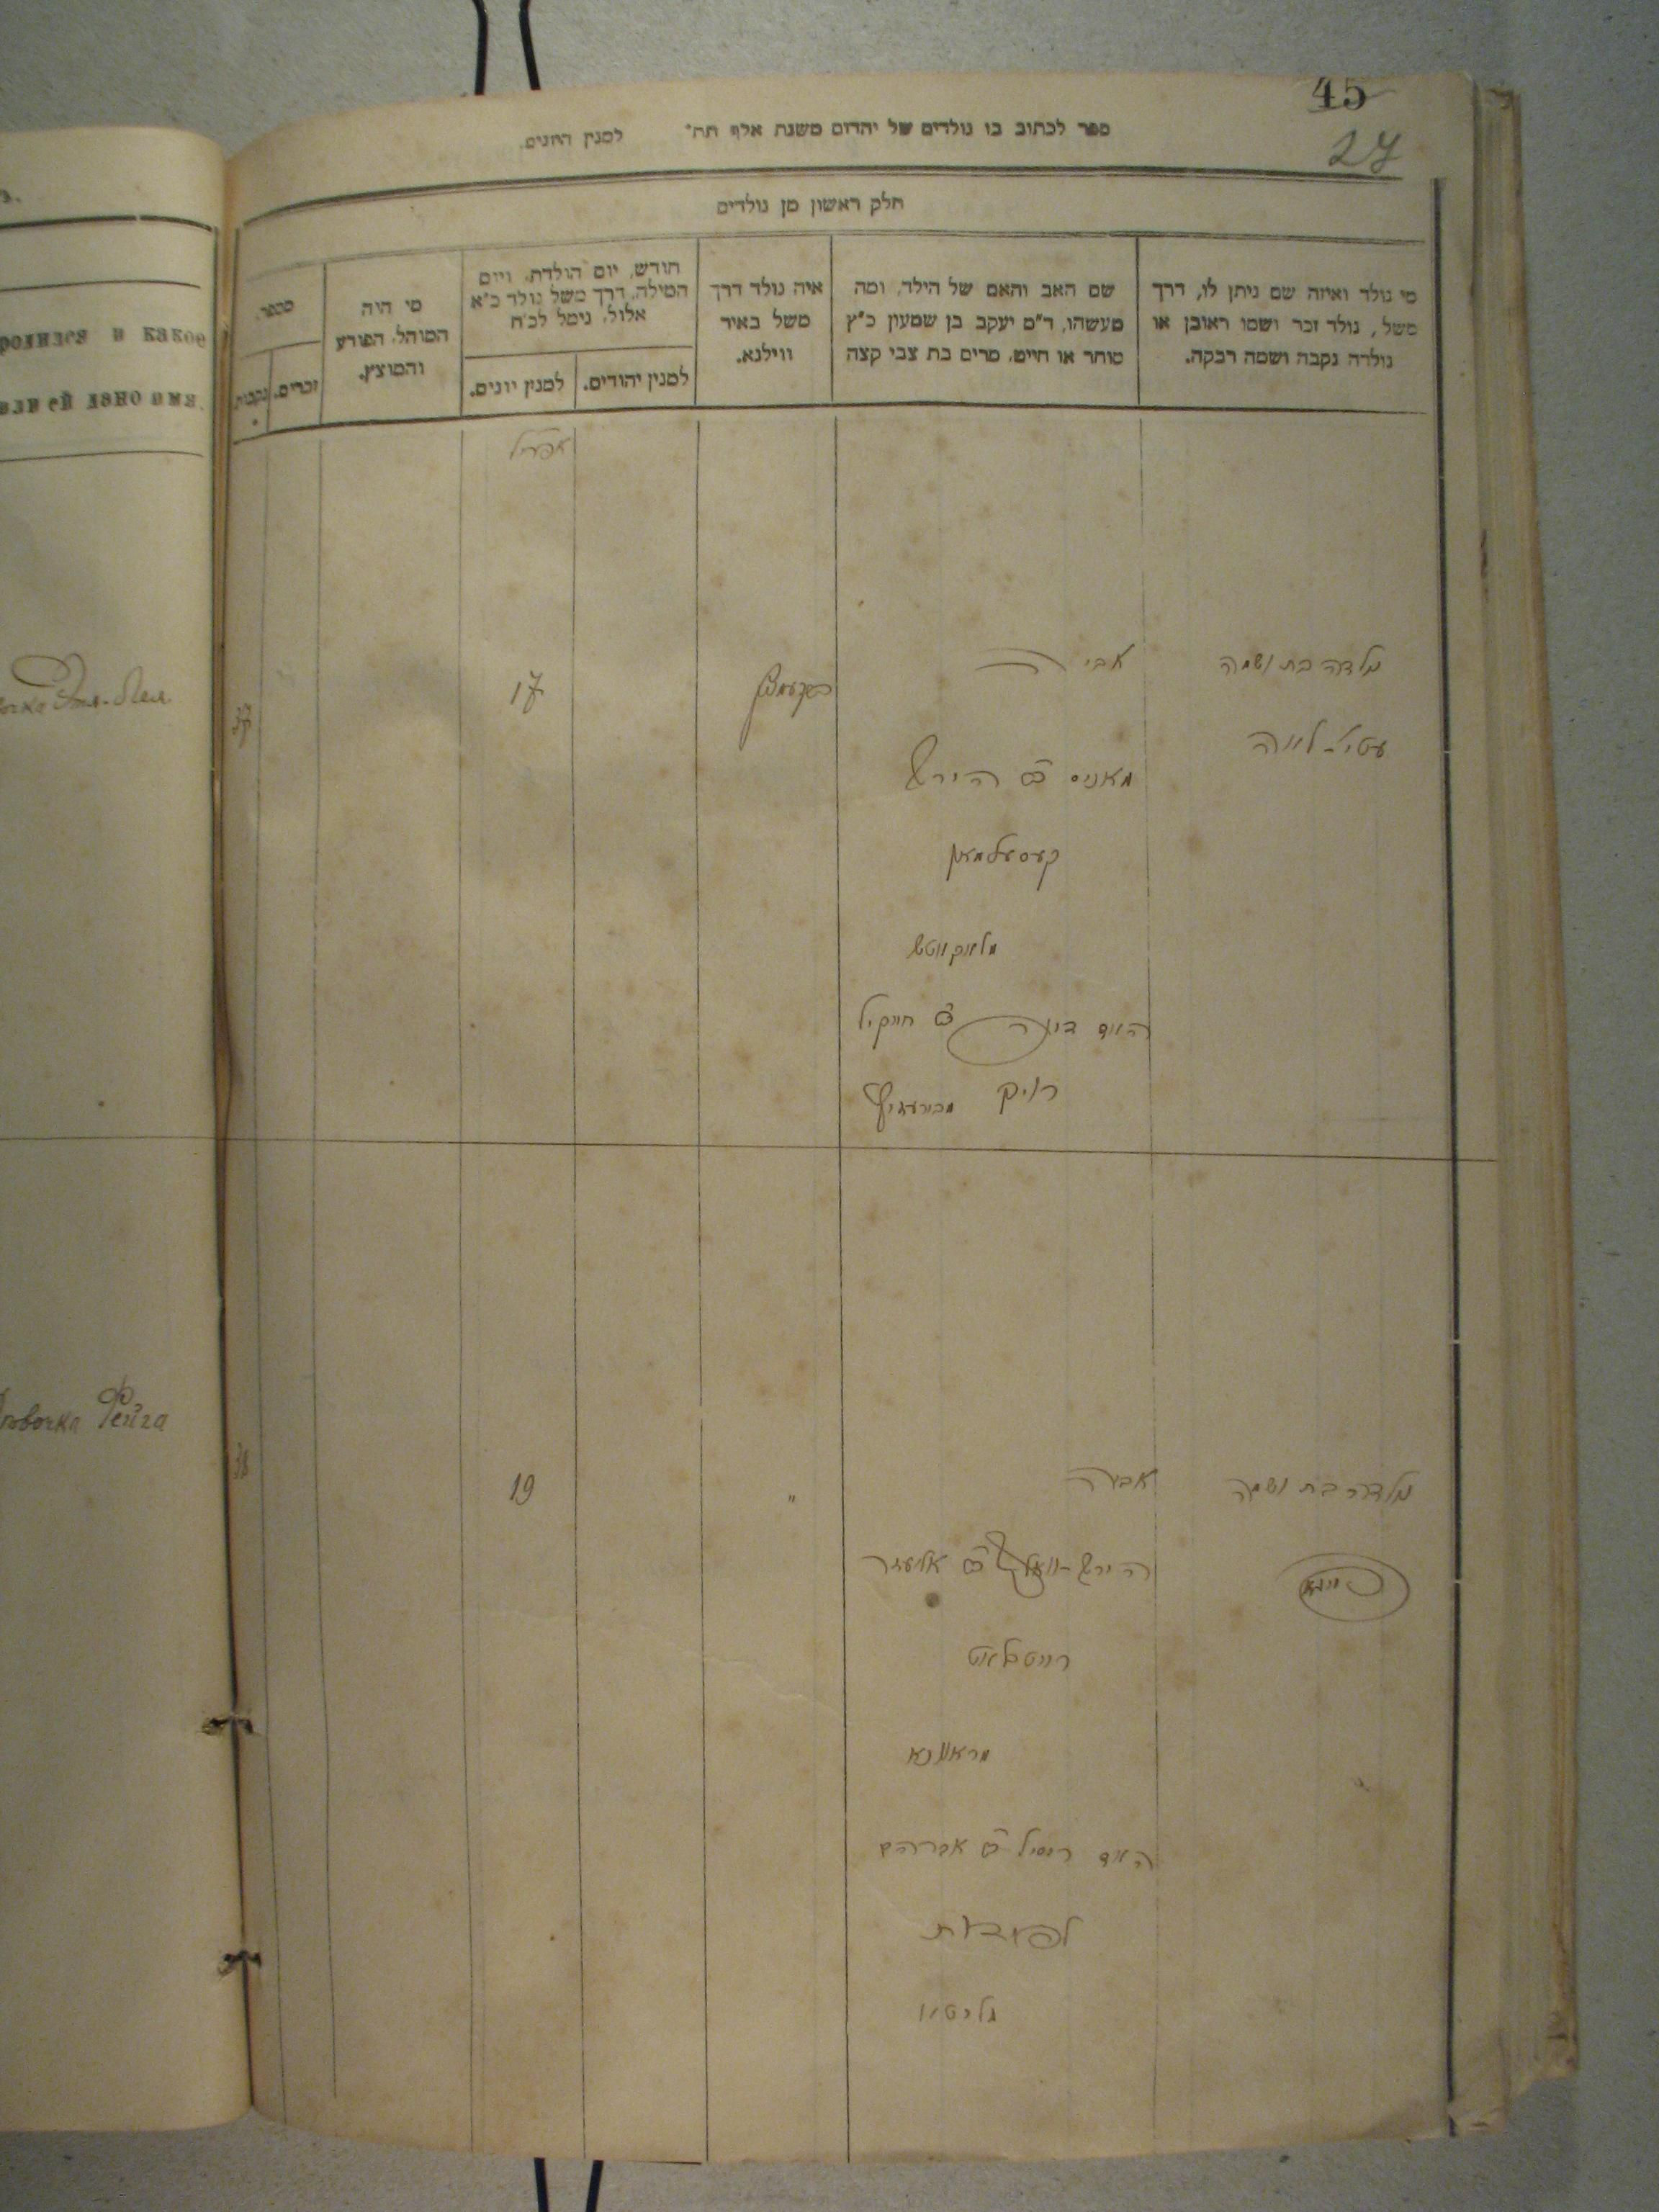 45
27
ספר לכתוב בו נולדים של יהדום משנת אלף תת״ למנין היונים.
חלק ראשון מן נולדים
מי נולד ואיזה שם ניתן לו, דרך
משל, נולד זכר ושמו ראובן או
נולדה נקבה ושמה רבקה.
שם האב והאם של הילד, ומה
מעשהו, ד״מ יעקב בן שמעון כ״ץ
סוחר או חייט, מרים בת צבי קצה
איה נולד דרך
משל באיר
ווילנא.
חודש, יום הולדת, ויום
המילה, דרך משל נולד כ״א
אלול, נימל לכ״ח
למנין יהודים.
למנין יונים.
מי היה
המוהל, הפורע
והמוצץ.
מספר.
זכרים.
נקבות.
родился и какое
или ей дано имя.
אפריל
נולדה בת ושמה
עטיל-לאה
אביה
מאניס ב״ר הירש
קעסעלמאן
האם דינה ב״ר חצקיל
רויק
17
37
Эля-Лея
נולדה בת ושמה
פייגא
אביה
הירש-וואלף ב״ר אליעזר
רויטבלאט
האם רייזל ב״ר אברהם
19
"
38
Девочка Фейга